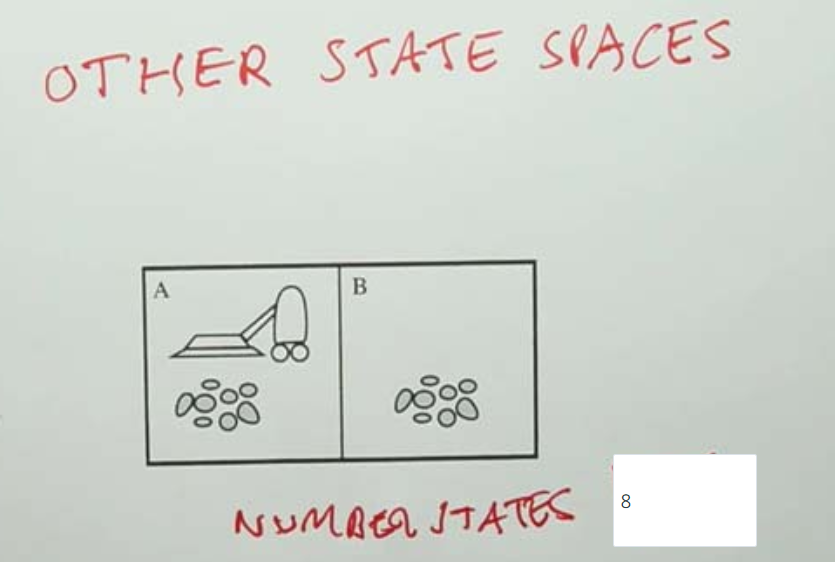 OTHER STATE SPACES
A B
NUMBER STATES 8